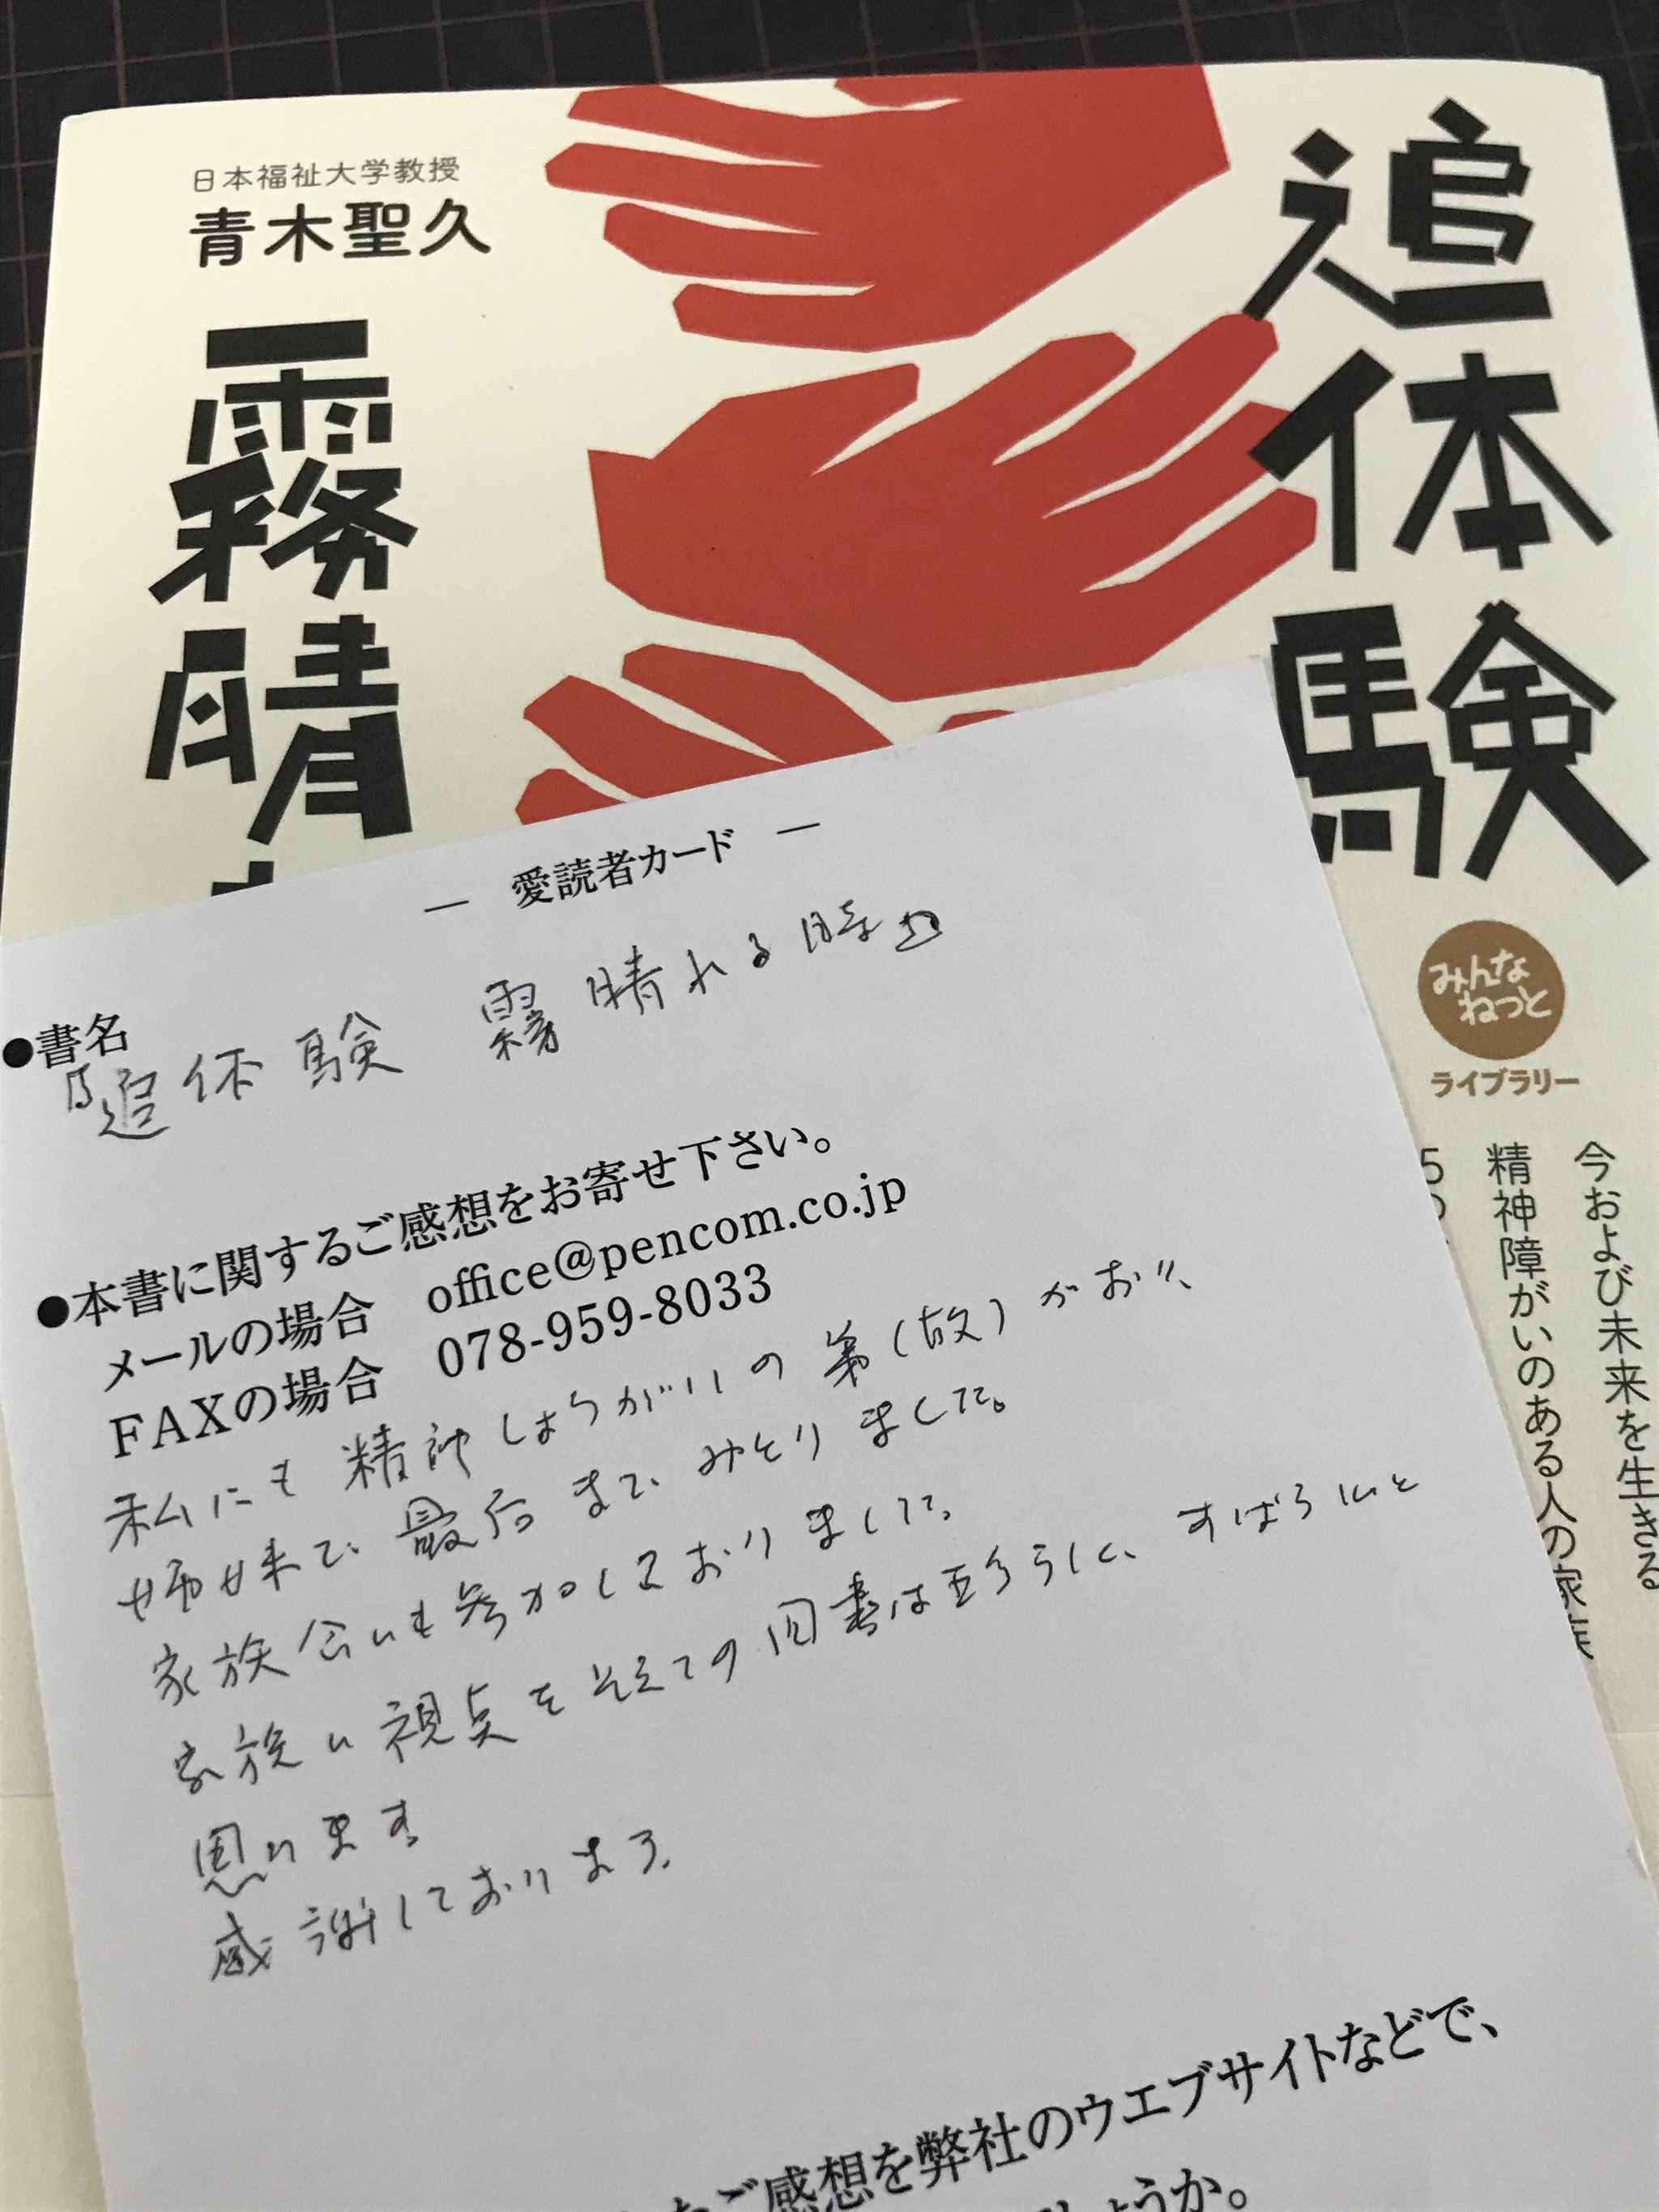 追体験
日本福祉大学教授
青木聖久
霧晴
みんな
ねっと
ライブラリー
今および未来を生きる
精神障がいのある人の家族
― 愛読者カード ―
●書名
『追体験 霧晴れる時』
●本書に関するご感想をお寄せ下さい。
メールの場合 office@pencom.co.jp
FAXの場合 078-959-8033
私にも精神しょうがいの弟(故)がおり、
姉妹で最后までみとりました。
家族会にも参加しておりました。
家族に視点をそえての図書は
すばらしいと
思います
感謝しております。
ご感想を弊社のウエブサイトなどで、
ょうか。